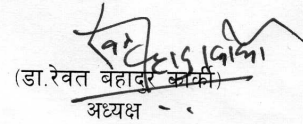 (डा.रेवत बहादुर कार्की)
अध्यक्ष